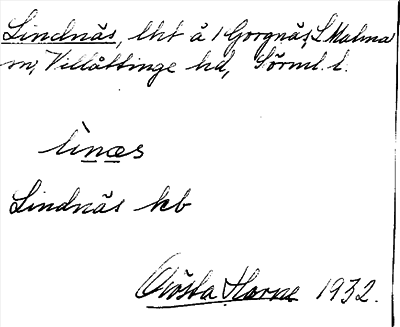 Lindnäs, lht å 1 Gorgnäs, L Malma
sn, Villåttinge hd, Sörml. l.
lìnæs
Lindnäs kb
Gösta Harne 1932.